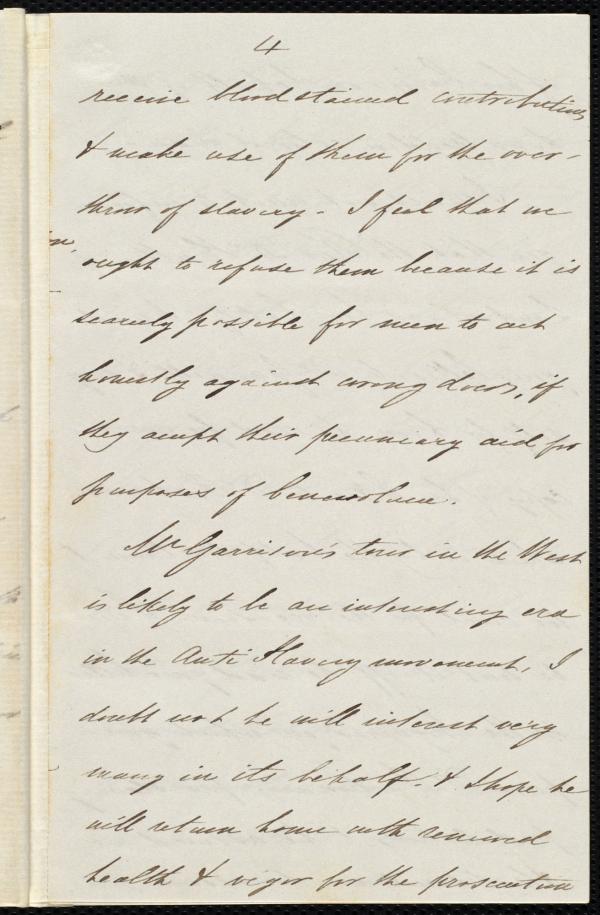 4
receive blood stained contributions
& make use of them for the over-
throw of slavery. I feel that we
ought to refuse them because it is
scarcely possible for men to act
honestly against wrong doers, if
they accept their pecuniary aid for
purposes of benevolence.
Mr Garrison's tour in the West
is likely to be an interesting era
in the Anti Slavery movement, I
doubt not he will interest very
many in its behalf. & I hope he
will return home with renewed
health & vigor for the prosecution